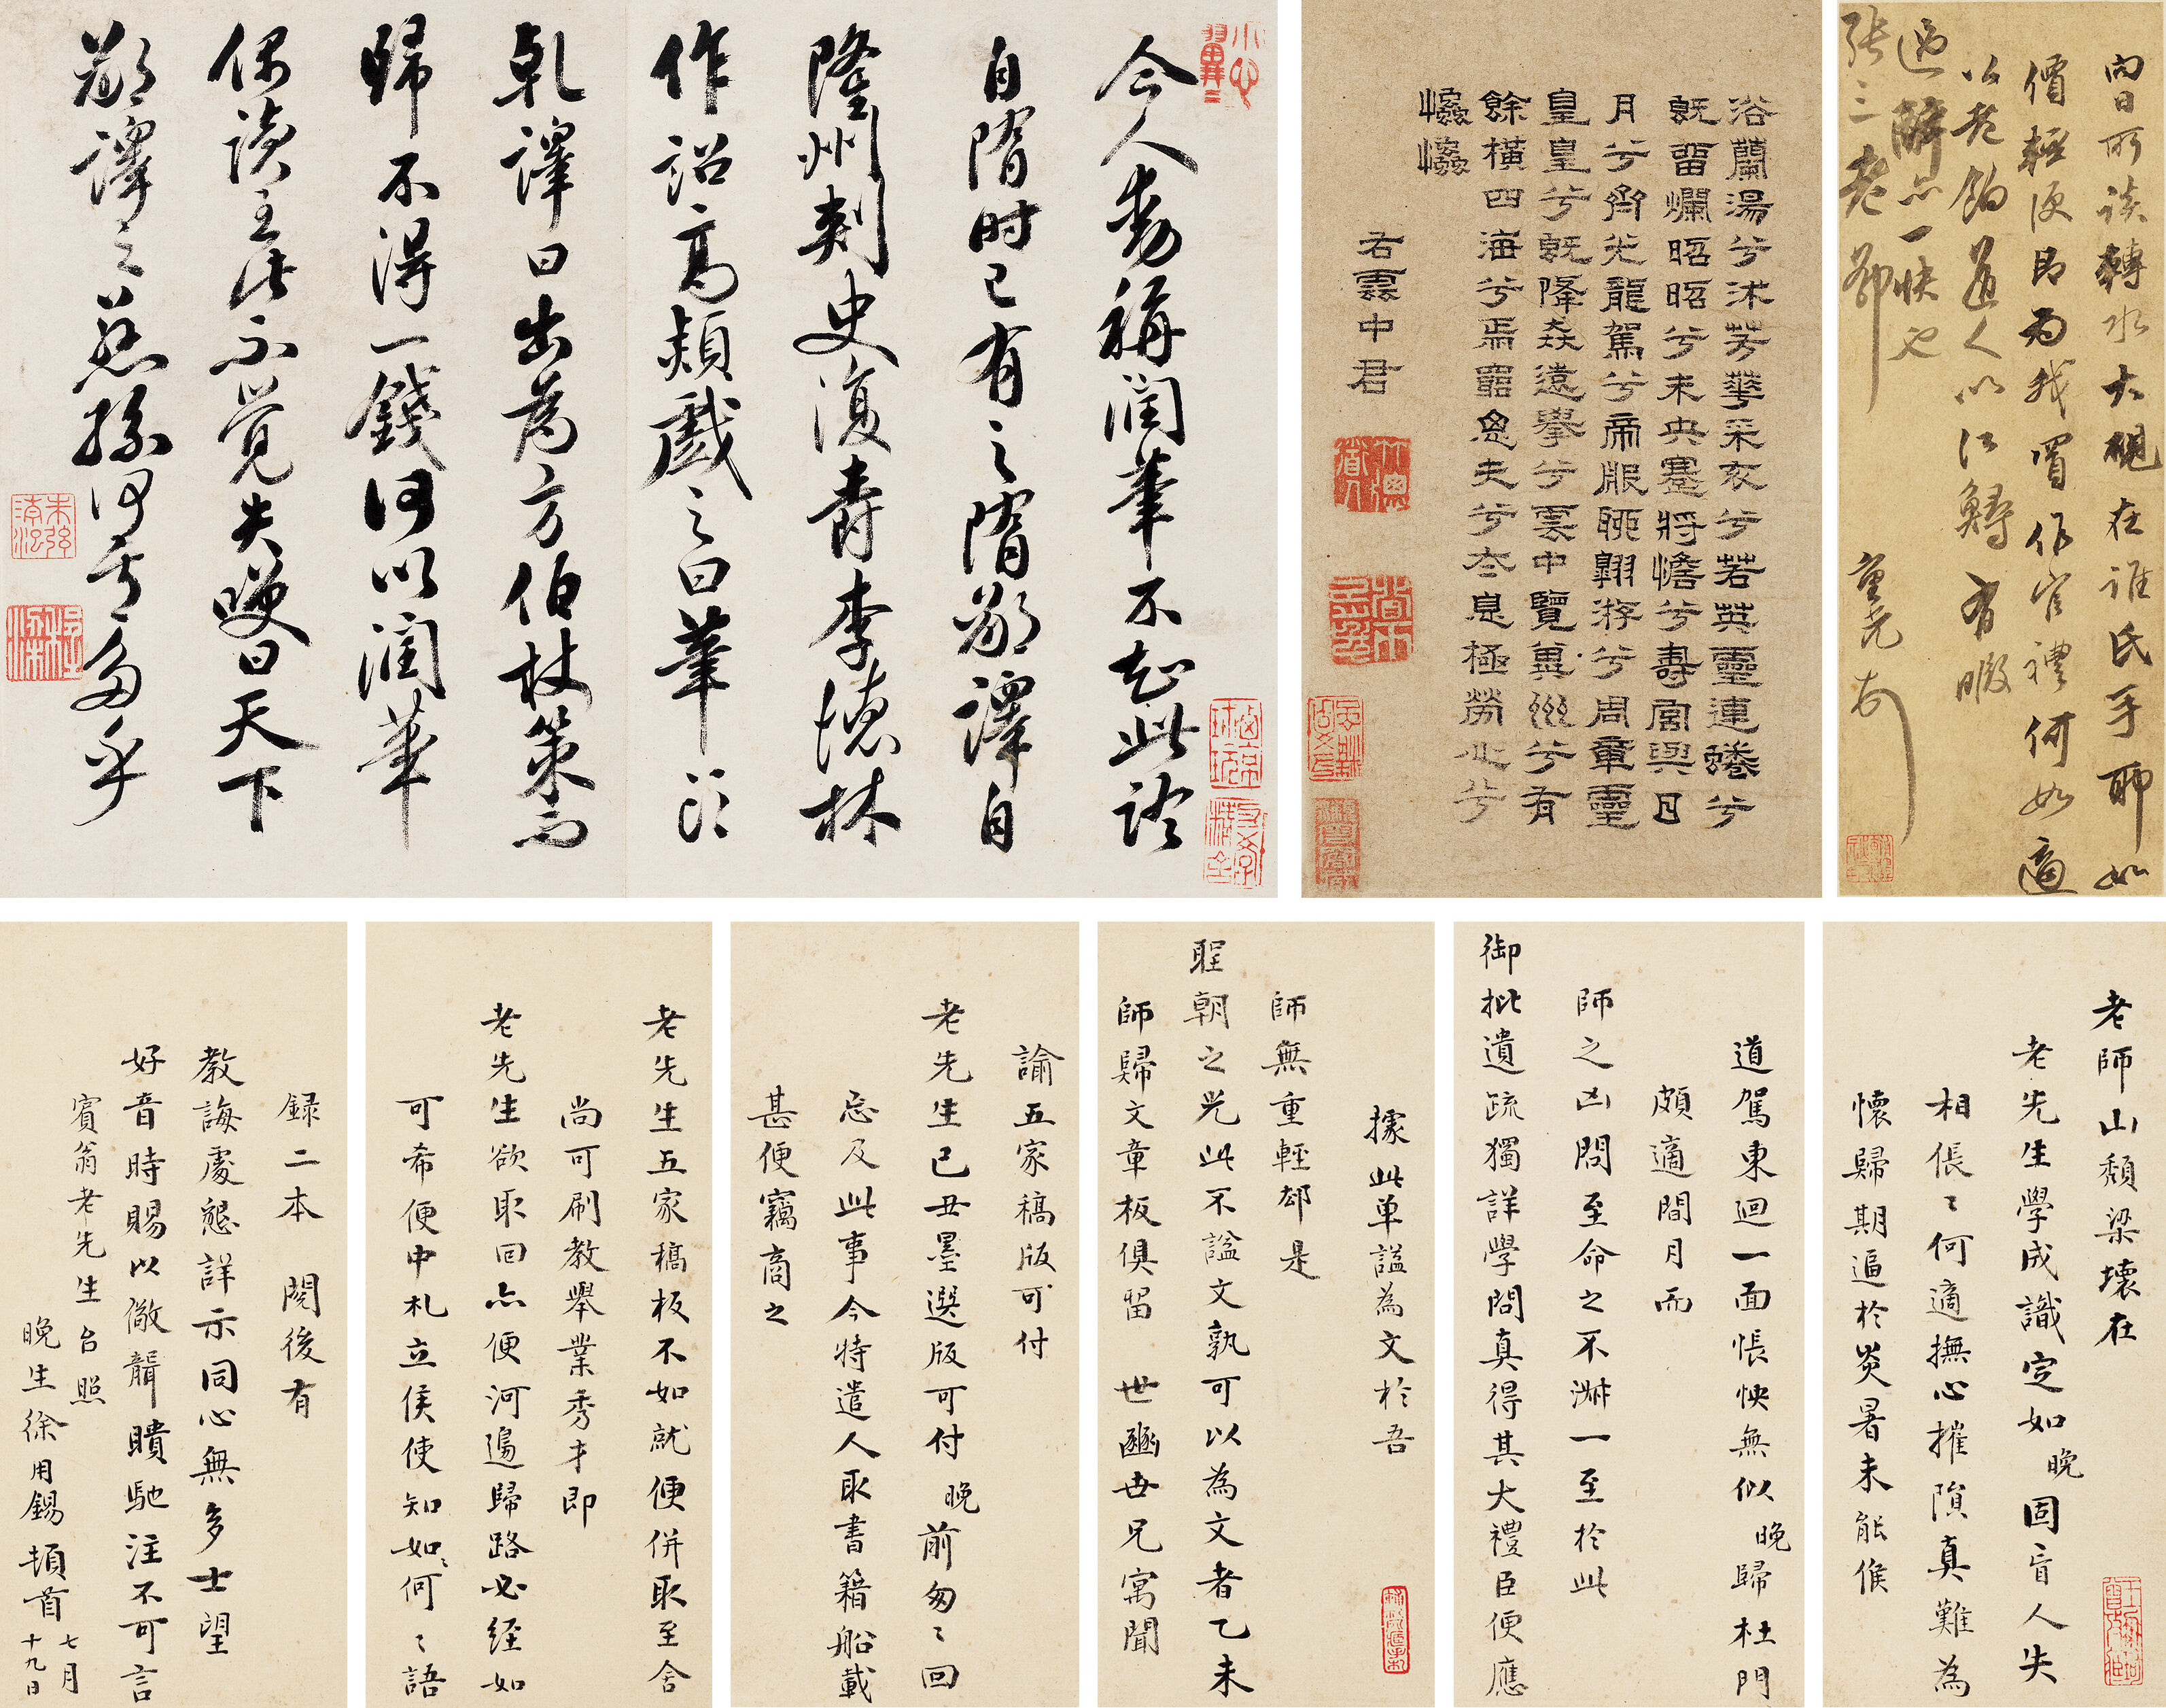 今人動稱潤筆不知此語
自隋時已有之隋鄭譯自
隆州刺史復爵李德林
作詔高熲戲之曰筆頭
乾譯曰出為方伯杖策而
歸不得一錢何以潤筆
偶讀至此不覺失嘆曰天下
鄭譯之慈孫何其多乎
浴蘭湯兮沐芳華采衣兮若英靈連蜷兮
既留爛昭昭兮未央蹇將憺兮壽宮與日
月兮齊光龍駕兮帝服聊翱游兮周章靈
皇皇兮既降猋遠舉兮雲中覽冀州兮有
餘橫四海兮焉窮思夫兮太息極勞心兮
忡忡
右雲中君
向日所談轉水大硯在誰氏手聊如
價輕便即為我買作官禮何如適
以花餉道人以江鱘有暇
過醉亦一快也
張三老
老師山頹梁壞在
老先生學成識定如晚固盲人失
相倀倀何適撫心摧隕真難為
懷歸期逼於炎暑未能候
道駕東迴一面悵怏無似晚歸杜門
頗適間月而
師之凶問至命之不淑一至於此
御批遺疏獨詳學問真得其大禮臣便應
據此單諡為文於吾
師無重輕却是
聖朝之光此不諡文孰可以為文者乙未
師歸文章板俱留 世 世兄寓聞
諭五家稿版可付
老先生已丑墨選版可付晚前匆匆回
忘及此事今特遣人取書籍船載
甚便竊商之
老先生五家稿板不如就便併取至舍
尚可刷教舉業秀才即
老先生欲取回亦便河邊歸路必經如
可希便中札立侯使知如如何何語
錄二本 閱後有
教誨處懇詳示同心無多士望
好音時賜以儆聾聵馳注不可言
賓翁老先生台照
晚生徐用錫頓首 七月十九日